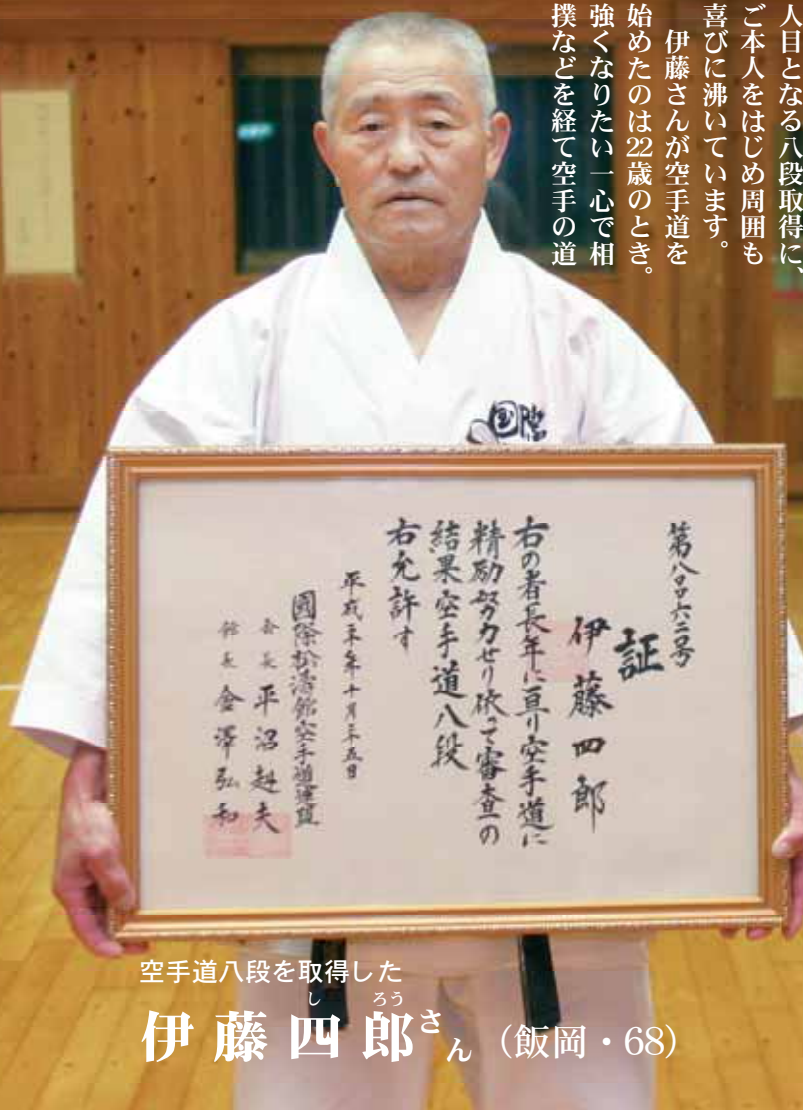 人目となる八段取得に、
ご本人をはじめ周囲も
喜びに沸いています。
伊藤さんが空手道を
始めたのは22歳のとき。
強くなりたい一心で相
撲などを経て空手の道
国際
第八〇六二号
証
伊藤四郎
右の者長年に亘り空手道に
精励努力せり依って審査の
結果空手道八段
右允許す
平成二十年十月二十五日
國際松濤館空手道連盟
会長 平沼赳夫
館長 金澤弘和
空手道八段を取得した
し ろう
伊藤四郎さん(飯岡・68)